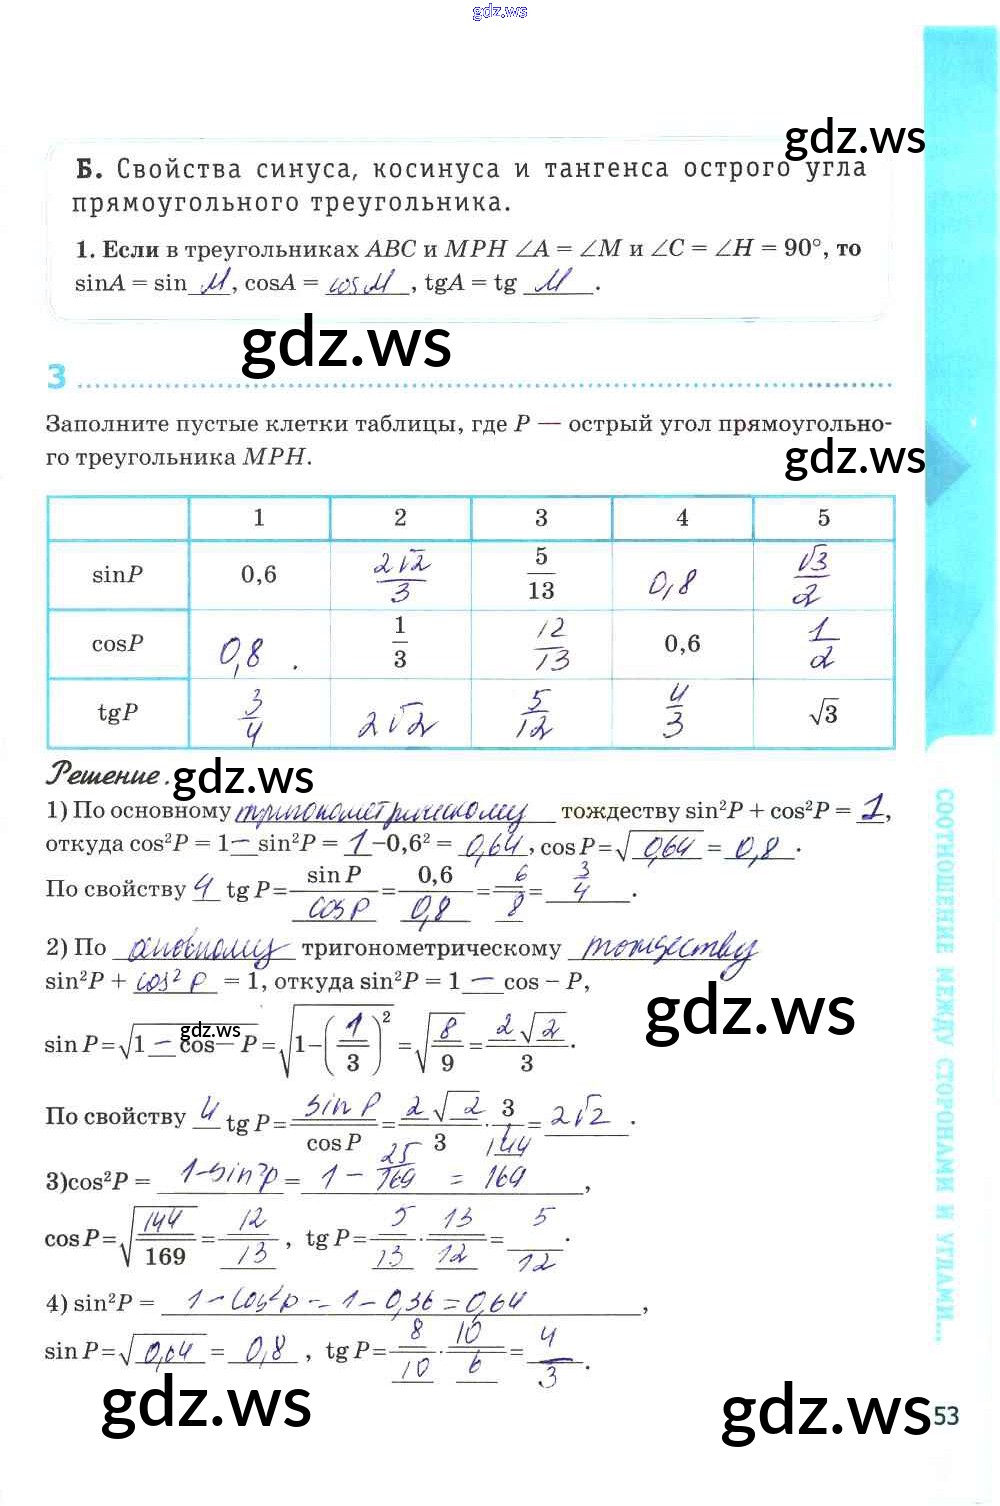 gdz.ws
gdz.ws
Б. Свойства синуса, косинуса и тангенса острого угла
прямоугольного треугольника.
1. Если в треугольниках ABC и MPH ∠A = ∠M и ∠C = ∠H = 90°, то
sinA = sin M, cosA = cos M, tgA = tg M.
gdz.ws
3
Заполните пустые клетки таблицы, где P — острый угол прямоугольно-
го треугольника MPH.
gdz.ws
1 2 3 4 5
sinP 0,6 2√2/3 5/13 0,8 √3/2
cosP 0,8 . 1/3 12/13 0,6 1/2
tgP 3/4 2√2 5/12 4/3 √3
Решение.
gdz.ws
1) По основному тригонометрическому тождеству sin²P + cos²P = 1,
откуда cos²P = 1 − sin²P = 1 −0,6² = 0,64, cos P = √0,64 = 0,8.
По свойству 4 tg P = sin P/cos P = 0,6/0,8 = 6/8 = 3/4.
2) По основному тригонометрическому тождеству
sin²P + cos² P = 1, откуда sin²P = 1 − cos − P,
gdz.ws
gdz.ws
sin P = √1 − cos − P = √1−(1/3)² = √8/9 = 2√2/3.
По свойству 4 tg P = sin P/cos P = 2√2/3 · 3/1 = 2√2.
3)cos²P = 1-sin²P = 1 − 25/169 = 144/169,
cos P = √144/169 = 12/13, tg P = 5/13 · 13/12 = 5/12.
4) sin²P = 1 − cos²P = 1 − 0,36 = 0,64,
sin P = √0,64 = 0,8, tg P = 8/10 · 10/6 = 4/3.
gdz.ws
gdz.ws
53
СООТНОШЕНИЕ МЕЖДУ СТОРОНАМИ И УГЛАМИ...